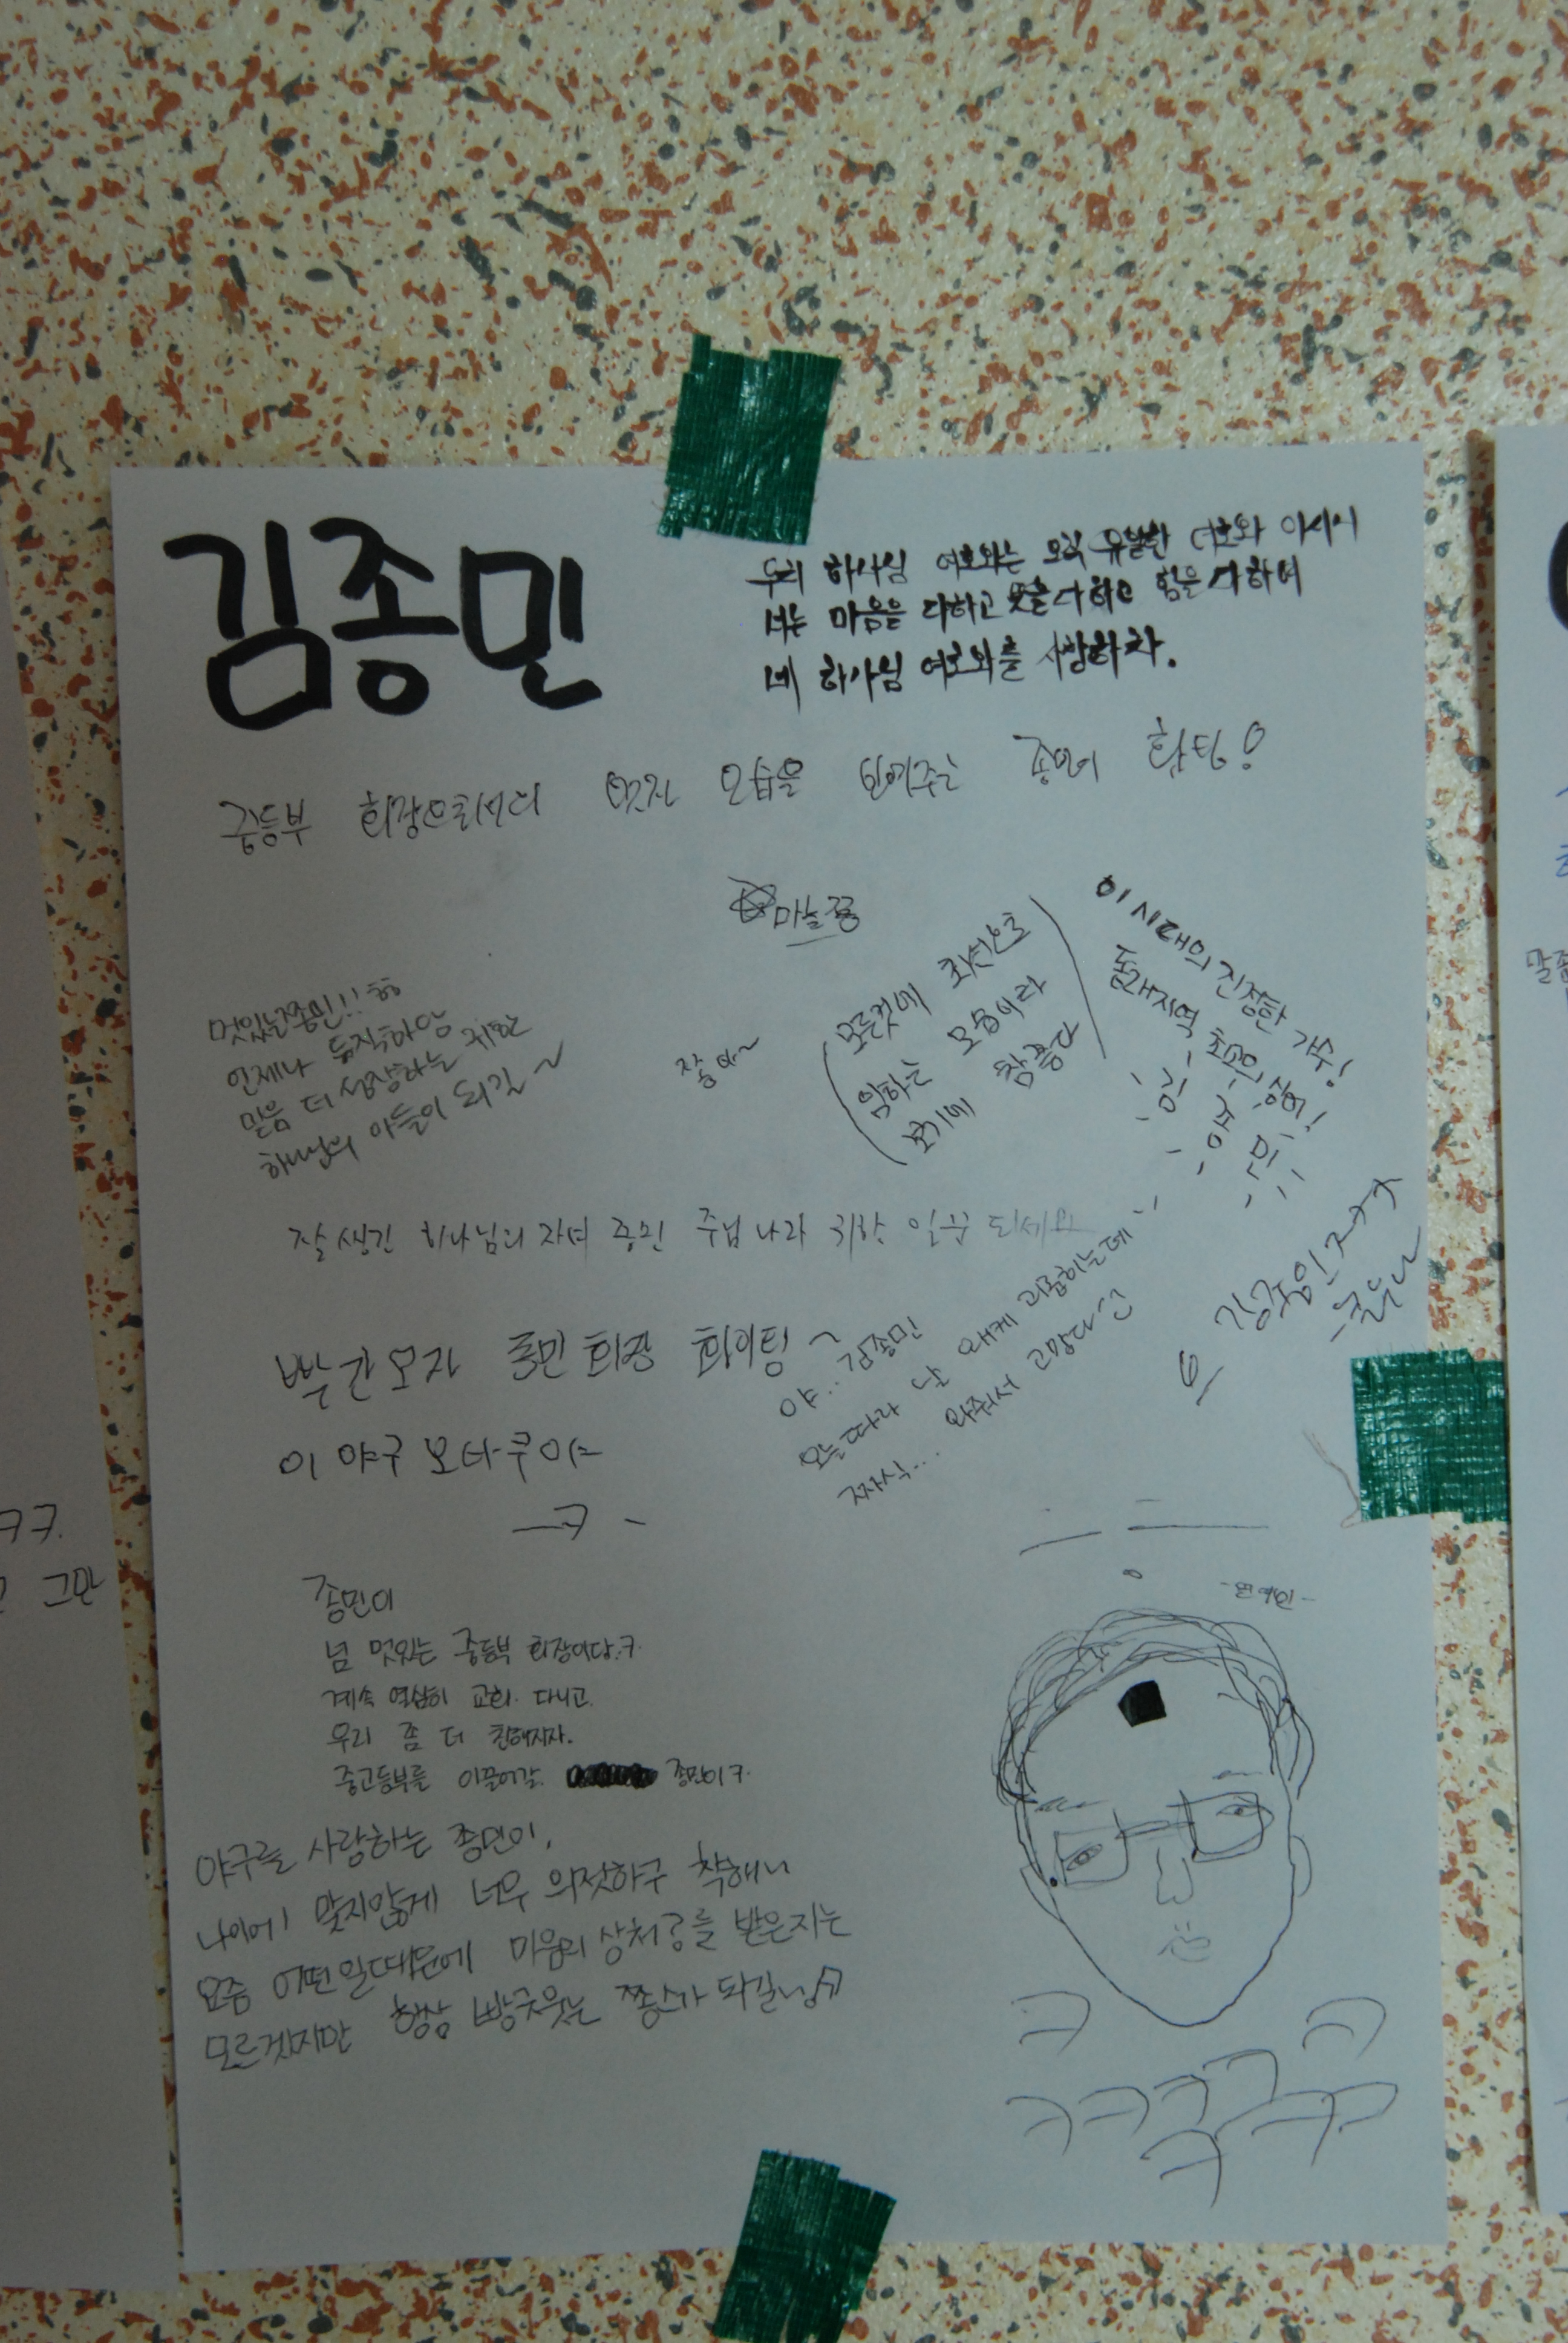 김종민
우리 하나님 여호와는 오직 유일한 여호와 이시니
너는 마음을 다하고 뜻을 다하고 힘을 다하여
네 하나님 여호와를 사랑하라.
중등부 회장으로서의 멋진 모습을 보여주는 종민이 홧팅!
마늘쫑
멋있는 종민!! ㅎㅎ
언제나 듬직하암
믿음 더 성장하는 귀한
하나님의 아들이 되길~
쫑아~
모든것에 최선으로
임하는 모습이라
보기에 참좋다
이 시대의 진정한 가수!
동래지역 초고의
김종민
잘 생긴 하나님의 자녀 종민 주님 나라 위한 일꾼 되세요
빨간모자 종민 회장 화이팅~
이 야구 오타쿠야
ㅡㅋ-
야.. 김종민
오늘따라 날 왜케 괴롭히는데
짜식... 와줘서 고맙다
종민이
넘 멋있는 중등부 회장이당.ㅋ
계속 열심히 교회 다니고
우리 좀 더 친해지자.
중고등부를 이끌어갈 종민이ㅋ
야구를 사랑하는 종민이,
나이에 맞지않게 너무 의젓하구 착해
요즘 어떤일때문에 마음의 상처?를 받은지는
모르겠지만 항상 빵긋웃는 쫑스가 되길
-연예인-
ㅋ ㅋ
ㅋㅋㅋㅋㅋ
ㅋ
ㅋㅋ.
그만